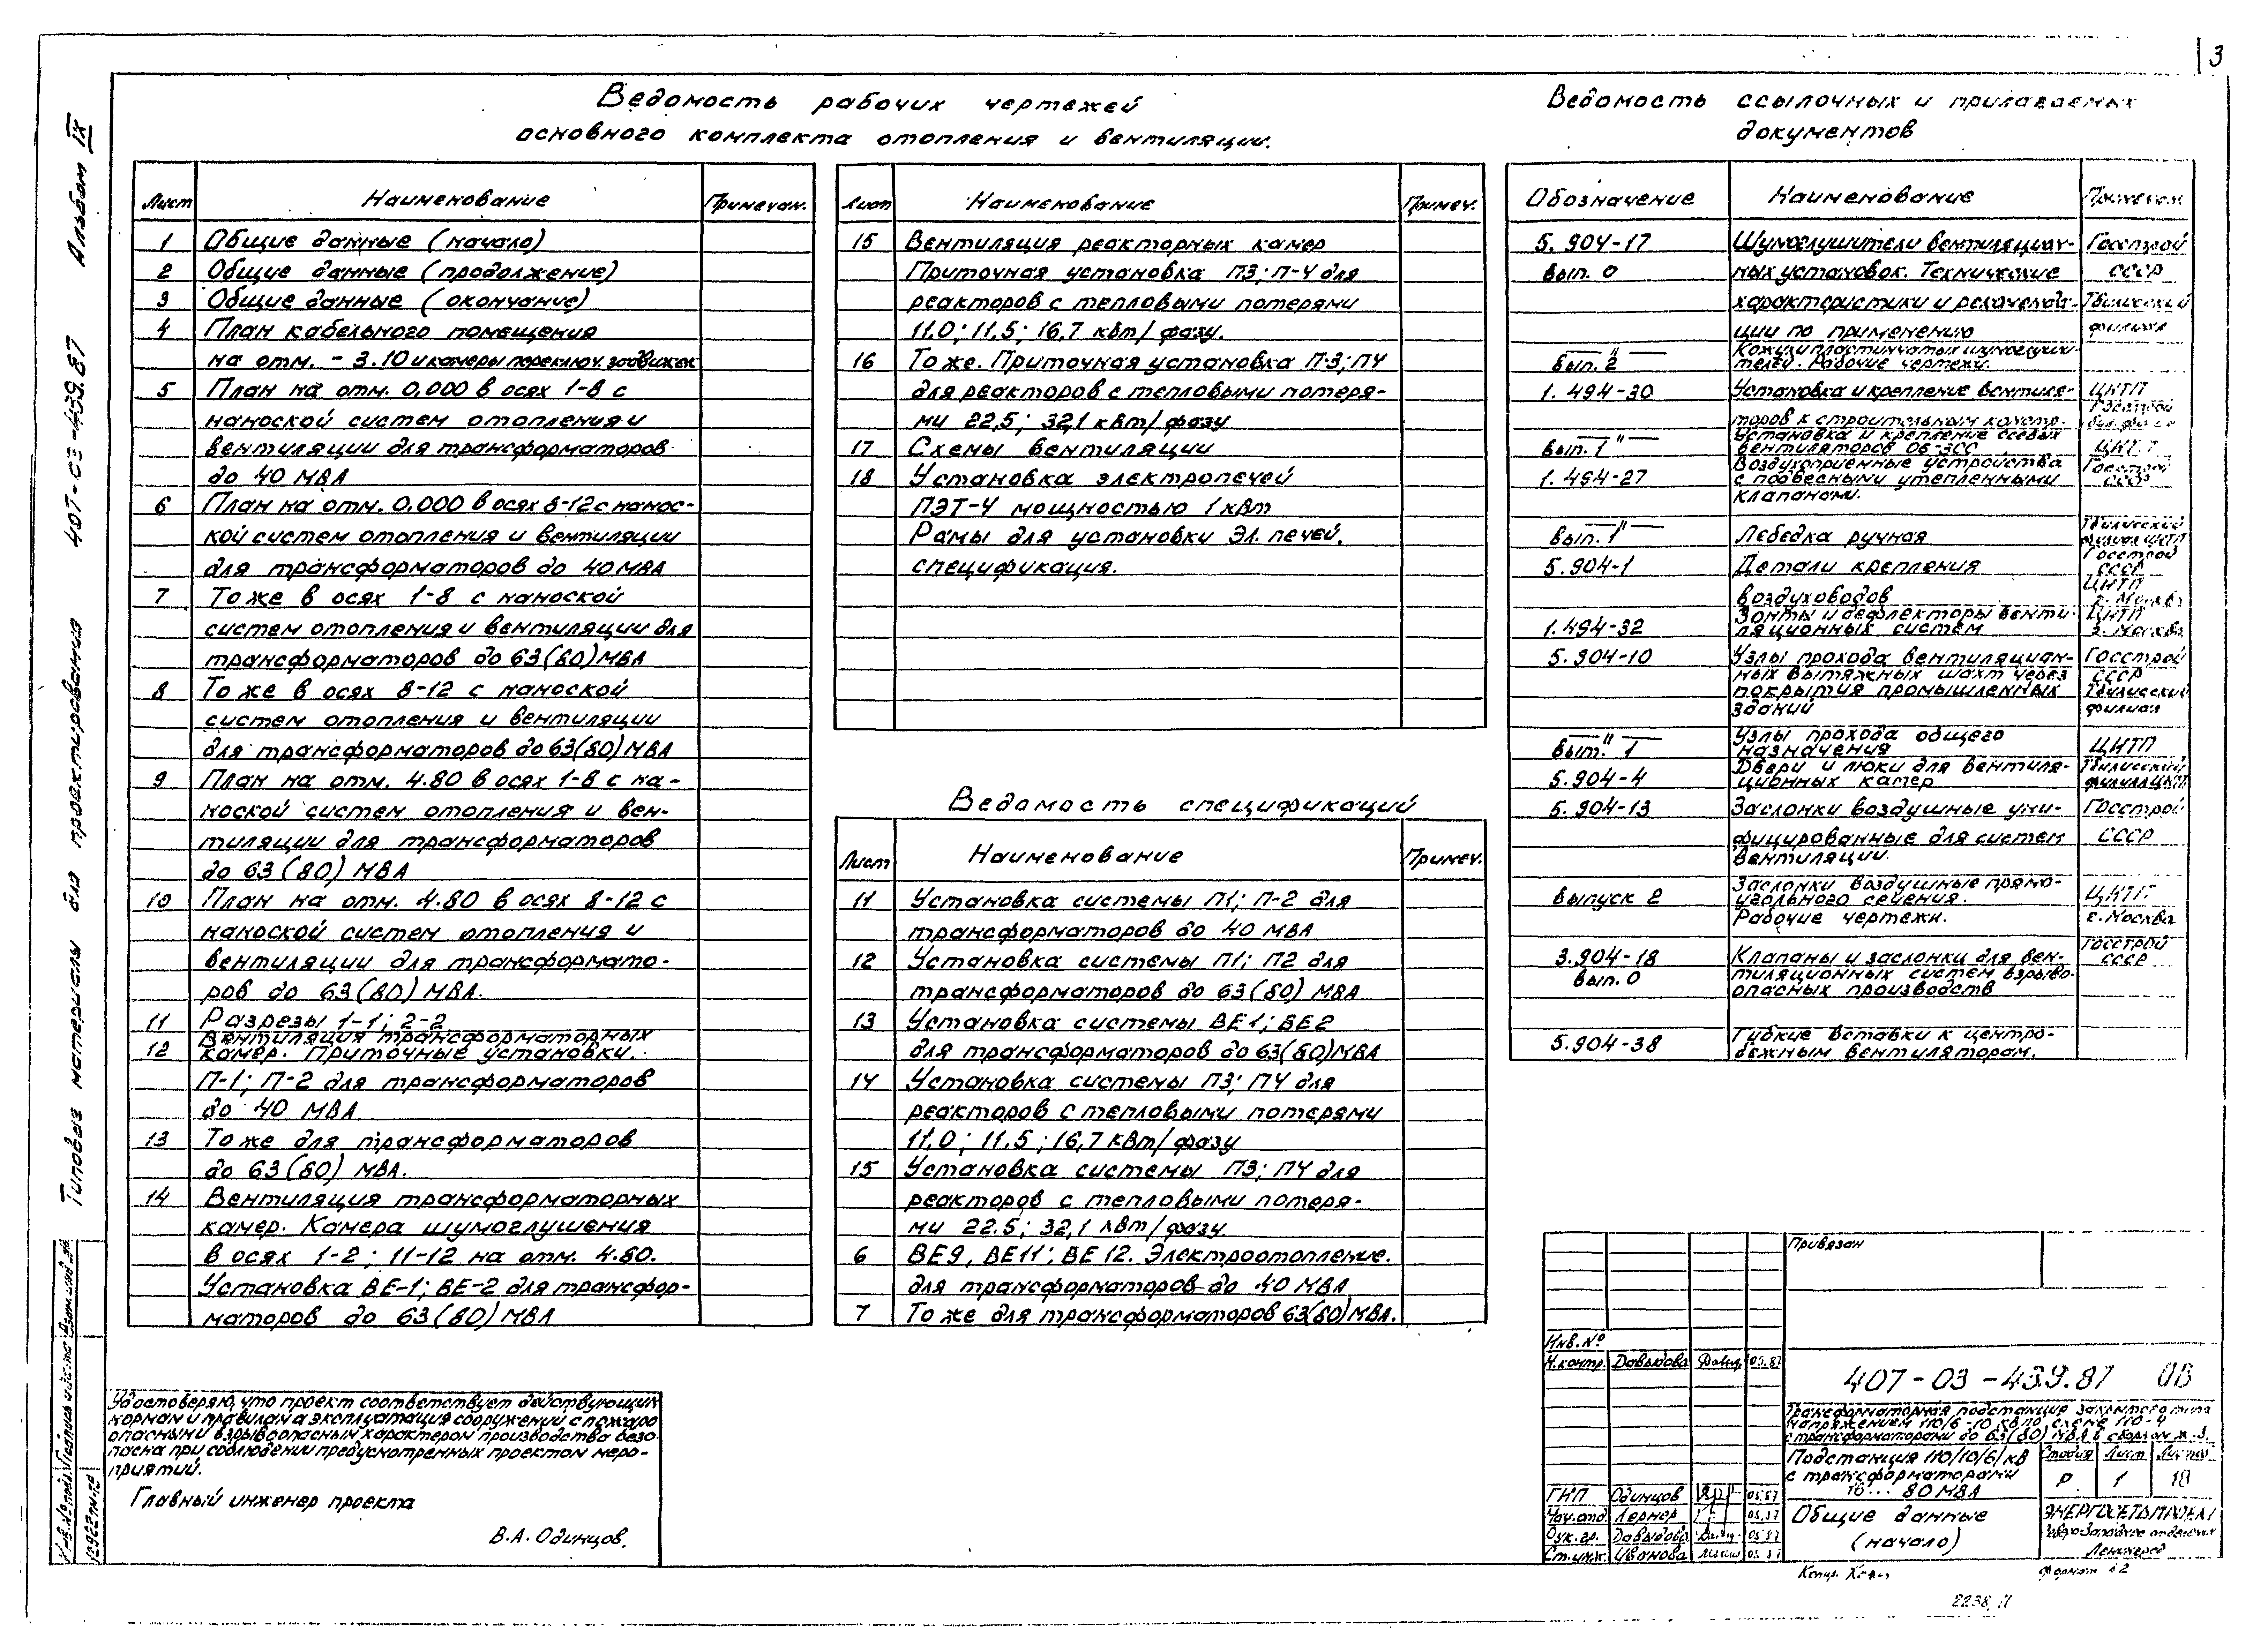 3
Альбом IX
407-03-439.87
Типовые материалы для проектирования
Ведомость рабочих чертежей
основного комплекта отопления и вентиляции.
Лист Наименование Примечан.
1 Общие данные (начало)
2 Общие данные (продолжение)
3 Общие данные (окончание)
4 План кабельного помещения
на отм. -3.10 и камеры переключ. задвижек
5 План на отм. 0,000 в осях 1-8 с
наноской систем отопления и
вентиляции для трансформаторов
до 40 МВА
6 План на отм. 0,000 в осях 8-12 с нанос-
кой систем отопления и вентиляции
для трансформаторов до 40 МВА
7 То же в осях 1-8 с наноской
систем отопления и вентиляции для
трансформаторов до 63(80) МВА
8 То же в осях 8-12 с наноской
систем отопления и вентиляции
для трансформаторов до 63(80) МВА
9 План на отм. 4.80 в осях 1-8 с на-
ноской систем отопления и вен-
тиляции для трансформаторов
до 63(80) МВА
10 План на отм. 4.80 в осях 8-12 с
наноской систем отопления и
вентиляции для трансформато-
ров до 63(80) МВА.
11 Разрезы 1-1; 2-2
Вентиляция трансформаторных
12 камер. Приточные установки.
П-1; П-2 для трансформаторов
до 40 МВА
13 То же для трансформаторов
до 63(80) МВА.
14 Вентиляция трансформаторных
камер. Камера шумоглушения
в осях 1-2; 11-12 на отм. 4.80.
Установка ВЕ-1; ВЕ-2 для трансфор-
маторов до 63(80) МВА
Лист Наименование Примеч.
15 Вентиляция реакторных камер
Приточная установка П3; П-4 для
реакторов с тепловыми потерями
11,0; 11,5; 16,7 кВт/фазу.
16 То же. Приточная установка П-3; П4
для реакторов с тепловыми потеря-
ми 22,5; 32,1 кВт/фазу
17 Схемы вентиляции
18 Установка электропечей
ПЭТ-4 мощностью 1 кВт
Рамы для установки Эл. печей.
спецификация.
Ведомость спецификаций
Лист Наименование Примеч.
11 Установка системы П1; П-2 для
трансформаторов до 40 МВА
12 Установка системы П1; П2 для
трансформаторов до 63(80) МВА
13 Установка системы ВЕ1; ВЕ2
для трансформаторов до 63(80) МВА
14 Установка системы П3; П4 для
реакторов с тепловыми потерями
11,0; 11.5; 16,7 кВт/фазу
15 Установка системы П3; П4 для
реакторов с тепловыми потеря-
ми 22.5; 32,1 кВт/фазу.
6 ВЕ9, ВЕ11; ВЕ12. Электроотопление.
для трансформаторов до 40 МВА
7 То же для трансформаторов 63(80) МВА.
Ведомость ссылочных и прилагаемых
документов
Обозначение Наименование Примечан
5.904-17 Шумоглушители вентиляцион- Госстрой
вып. 0 ных установок. Технические СССР
характеристики и рекоменда- Тбилисский
ции по применению филиал
—"— Кожухи пластинчатых шумоглуши-
вып. 2 телей. Рабочие чертежи.
1.494-30 Установка и крепление вентиля- ЦИТП
Госстрой
торов к строительным констр.
—"— Установка и крепление осевых
вып. 1 вентиляторов 06-300 ЦИТП
1.494-27 Воздухоприемные устройства Госстрой
с подвесными утепленными СССР
клапанами.
—"— Тбилисский
вып. 1 Лебедка ручная филиал ЦИТП
5.904-1 Детали крепления Госстрой
СССР
воздуховодов ЦИТП
г. Москва
1.494-32 Зонты и дефлекторы венти- ЦИТП
ляционных систем г. Москва
5.904-10 Узлы прохода вентиляцион- Госстрой
ных вытяжных шахт через СССР
покрытия промышленных Тбилисский
зданий филиал
—"— Узлы прохода общего
вып. 1 назначения ЦИТП
5.904-4 Двери и люки для вентиля- Тбилисский
ционных камер филиал ЦИТП
5.904-13 Заслонки воздушные уни- Госстрой
фицированные для систем СССР
вентиляции.
Заслонки воздушные прямо-
выпуск 2 угольного сечения. ЦИТП
Рабочие чертежи. г. Москва
3.904-18 Клапаны и заслонки для вен- Госстрой СССР
вып. 0 тиляционных систем взрыво-
опасных производств
5.904-38 Гибкие вставки к центро-
бежным вентиляторам.
Удостоверяю, что проект соответствует действующим
нормам и правилам а эксплуатация сооружений с пожаро
опасным и взрывоопасным характером производства безо-
пасна при соблюдении предусмотренных проектом меро-
приятий.
Главный инженер проекта
В.А. Одинцов.
Инв. № подл. Подпись и дата Взам. инв. №
12922тм-т9
Привязан
Инв. №
Н.контр. Давыдова 05.87
407-03-439.87 ОВ
Трансформаторная подстанция закрытого типа
напряжением 110/6-10 кВ по схеме 110-4
с трансформаторами до 63(80) МВА в сборном ж.б.
Подстанция 110/10/6/кВ
с трансформаторами
16...80 МВА
Стадия Лист Листов
Р 1 18
ГИП Одинцов 05.87
Нач.отд. Лернер 05.87
Рук.гр. Давыдова 05.87
Ст.инж. Иванова 05.87
Общие данные
(начало)
ЭНЕРГОСЕТЬПРОЕКТ
Северо-Западное отделение
Ленинград
Копир.
Формат А2